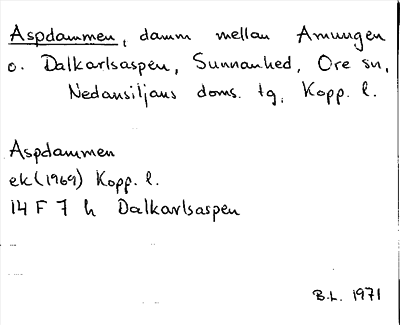 Aspdammen, damm mellan Amungen
o. Dalkarlsaspen, Sunnanhed, Ore sn,
Nedansiljans doms. tg, Kopp. l.
Aspdammen
ek (1969) Kopp. l.
14 F 7 h Dalkarlsaspen
B.L. 1971